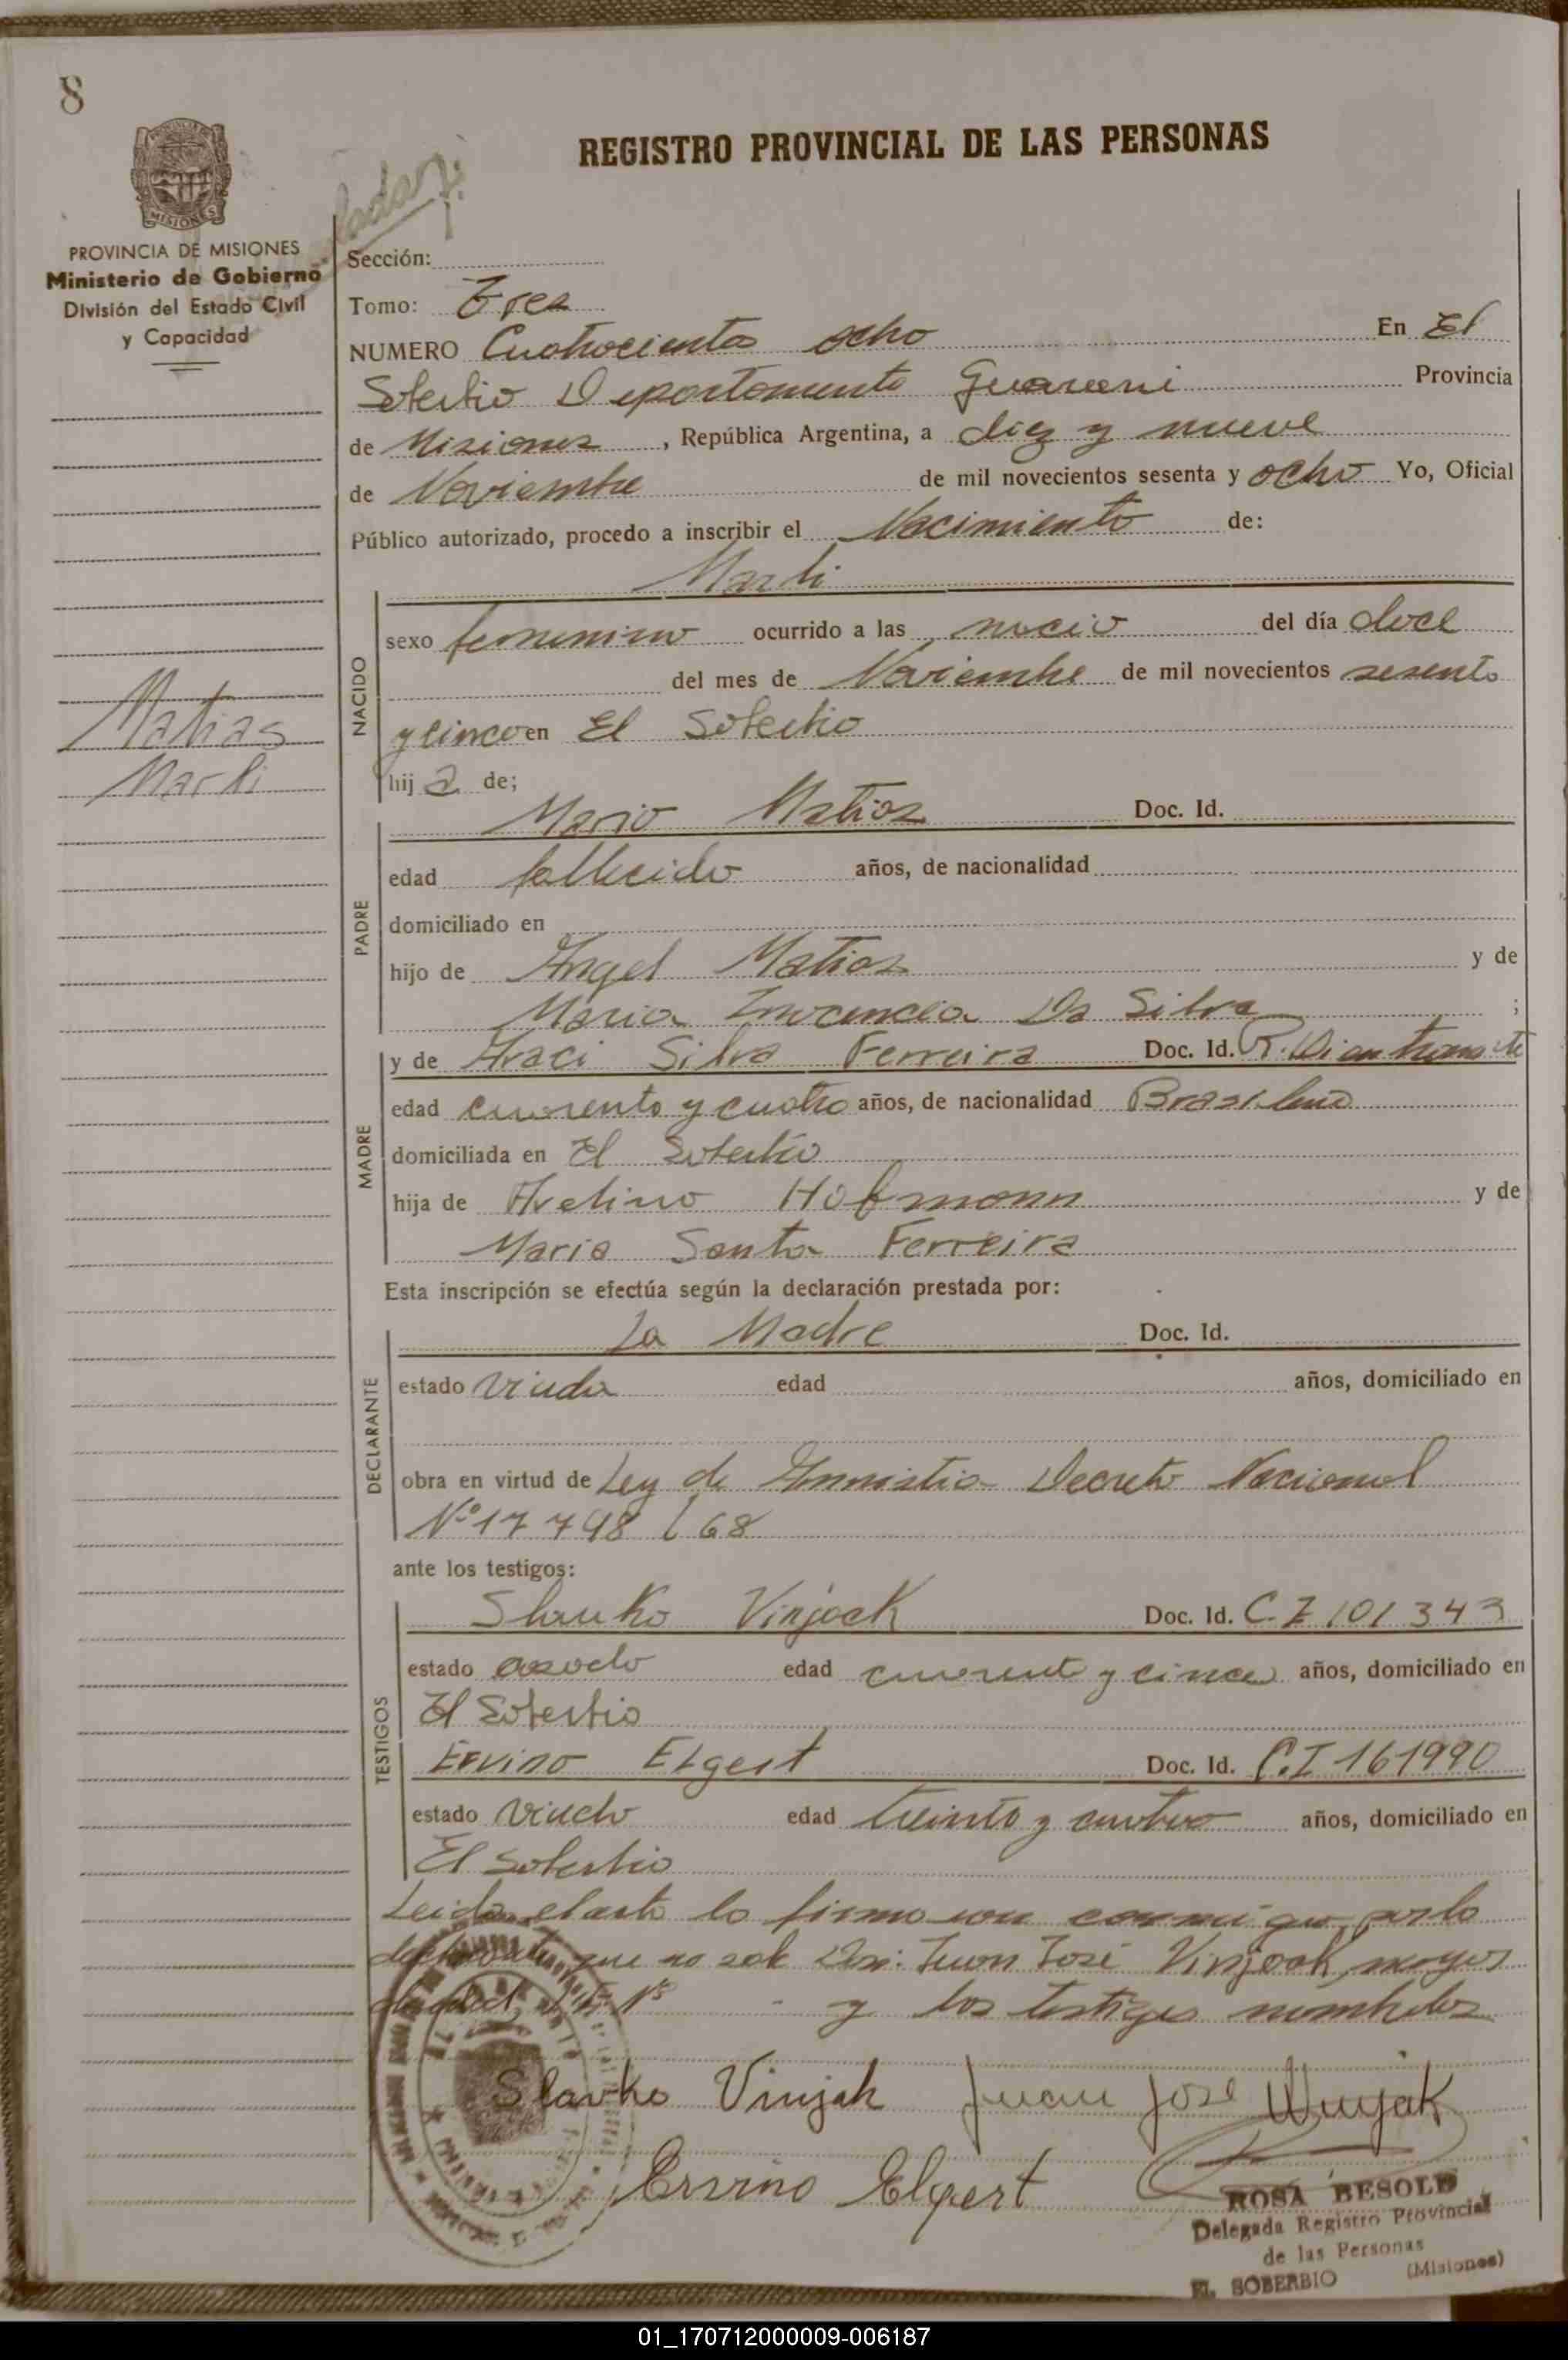 8
REGISTRO PROVINCIAL DE LAS PERSONAS
MISIONES
PROVINCIA DE MISIONES
Ministerio de Gobierno
División del Estado Civil
y Capacidad
Sección:
Tomo: Tres
NUMERO Cuatrocientos ocho En El
Soberbio Departamento Guarani Provincia
de Misiones, República Argentina, a diez y nueve
de Noviembre de mil novecientos sesenta y ocho Yo, Oficial
Público autorizado, procedo a inscribir el Nacimiento de:
Marli
NACIDO
sexo femenino ocurrido a las nacio del día doce
del mes de Noviembre de mil novecientos sesenta
y cinco en El Soberbio
Matias
Marli
hija de;
PADRE
Mario Matias Doc. Id.
edad fallecido años, de nacionalidad
domiciliado en
hijo de Angel Matias y de
Maria Inocencia Da Silva ;
MADRE
y de Araci Silva Ferreira Doc. Id.
edad cuarenta y cuatro años, de nacionalidad Brasileña
domiciliada en El Soberbio
hija de Avelino Hofmann y de
Maria Santa Ferreira
Esta inscripción se efectúa según la declaración prestada por:
DECLARANTE
La Madre Doc. Id.
estado Viuda edad años, domiciliado en
obra en virtud de Ley de Amnistia Decreto Nacional
Nº 17798/68
ante los testigos:
TESTIGOS
Slauko Vinjack Doc. Id. C.I 101343
estado casado edad cuarenta y cinco años, domiciliado en
El Soberbio
Ervino Elgert Doc. Id. C.I 161990
estado Viudo edad treinta y cuatro años, domiciliado en
El Soberbio
Leida el acta la firman conmigo, por la
declarante que no sabe Juan José Vinjack mayor
de edad y los testigos nombrados
Slavko Vinjak Juan José Vinjak
Ervino Elgert
ROSA BESOLD
Delegada Registro Provincial
de las Personas
EL SOBERBIO (Misiones)
01_170712000009-006187